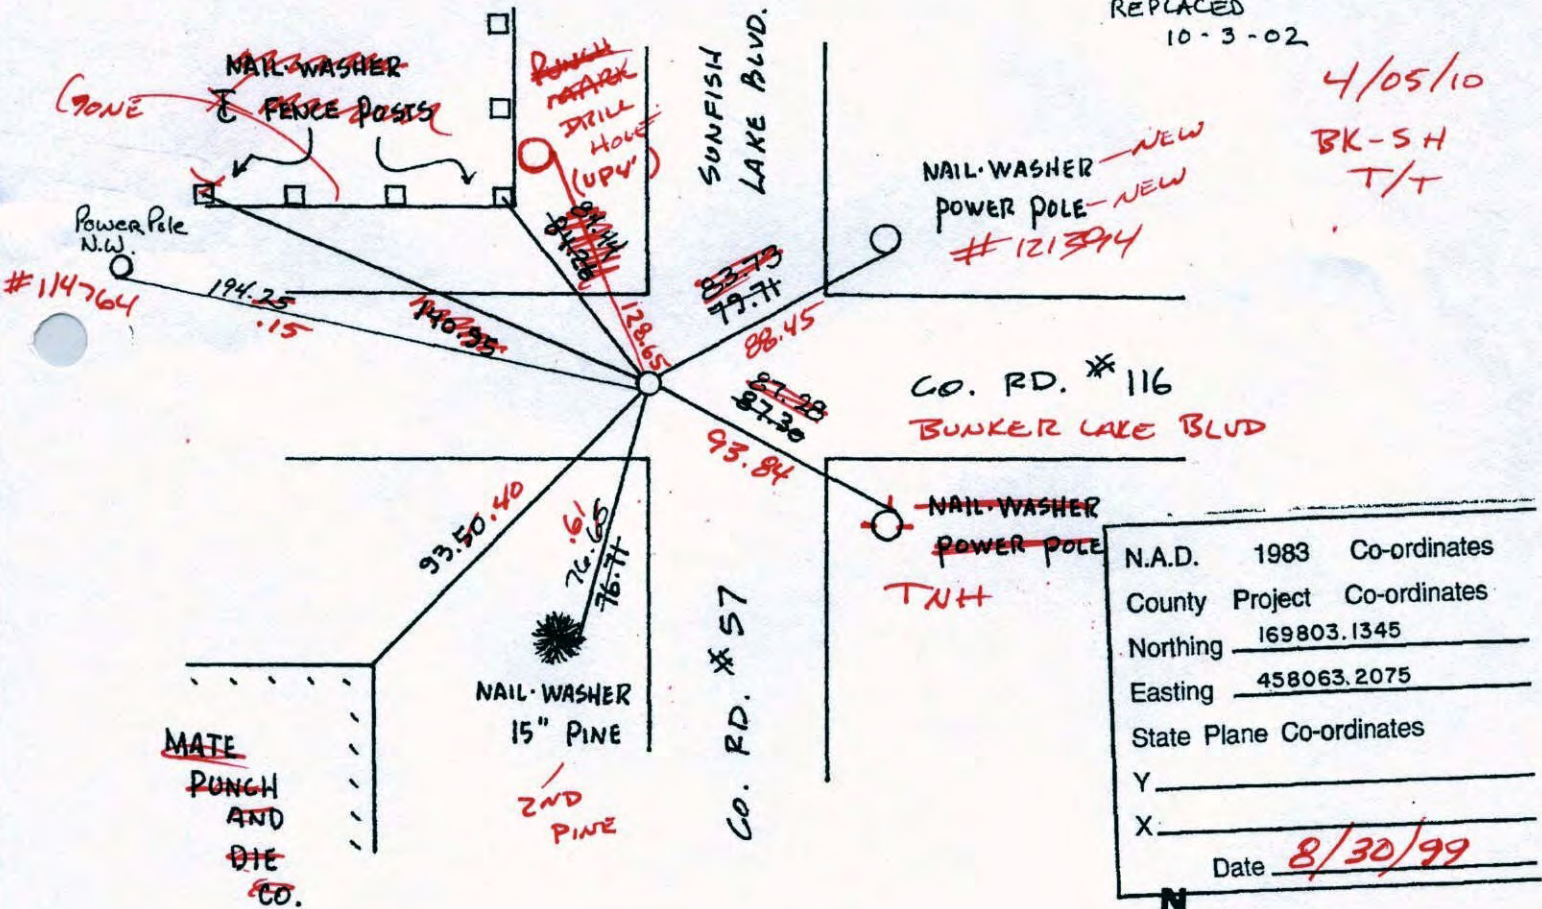 REPLACED
10-3-02
4/05/10
BK-SH
T/T
NAIL·WASHER
FENCE POSTS
GONE
PUNCH
MARK
DRILL
HOLE
(UP4')
SUNFISH
LAKE BLVD.
NAIL·WASHER
POWER POLE
NEW
NEW
#121394
Power Pole
N.W.
#114764
194.25
.15
140.95
84.44
84.26
128.65
83.73
79.71
88.45
87.28
87.30
93.84
CO. RD. #116
BUNKER LAKE BLVD
93.50
.40
.61
76.65
76.71
NAIL·WASHER
POWER POLE
TNH
NAIL·WASHER
15" PINE
2ND
PINE
CO. RD. #57
MATE
PUNCH
AND
DIE
CO.
N.A.D. 1983 Co-ordinates
County Project Co-ordinates
Northing 169803.1345
Easting 458063.2075
State Plane Co-ordinates
Y
X
Date 8/30/99
N